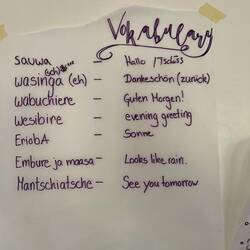 Vokabulary
sauwa – Hallo / Tschüss
(sch)
wasinga (eh) – Dankeschön (zurück)
wabuchiere – Guten Morgen!
wesibire – evening greeting
EriobA – Sonne
Embure ja maasa – Looks like rain.
Mantschiatsche – See you tomorrow